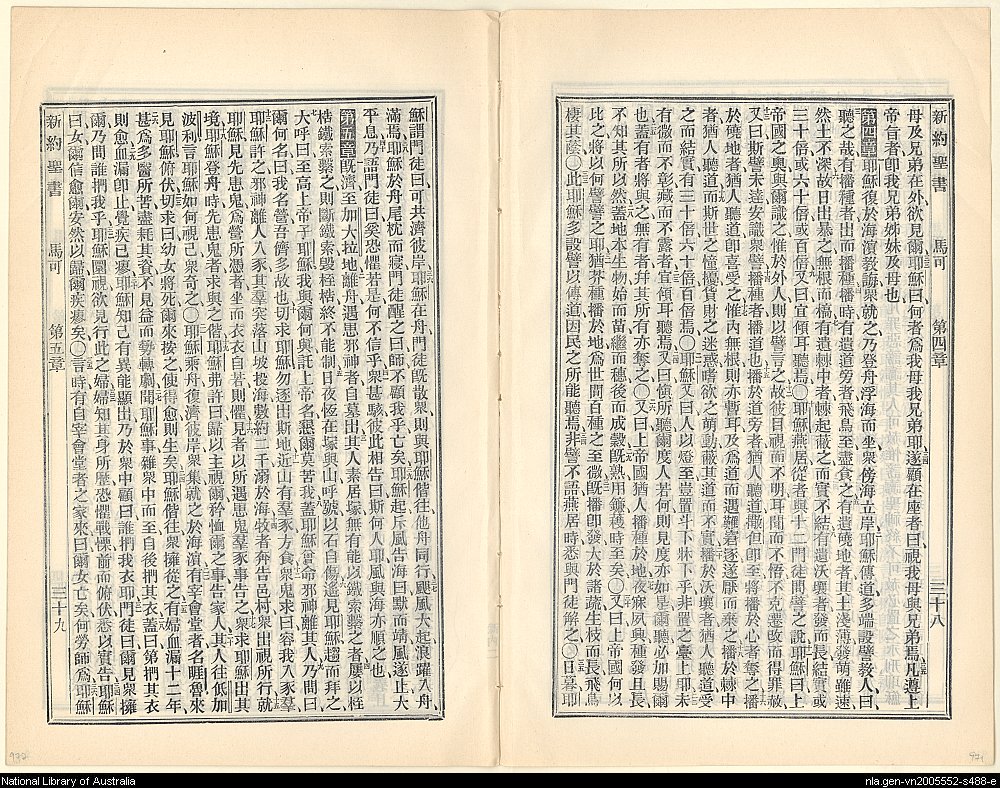 新約聖書 馬可 第四章 三十八
母及兄弟在外欲見爾耶穌曰何者爲我母我兄弟耶遂顧在座者曰視我母與兄弟焉凡遵上
帝旨者卽我兄弟姊妹及母也
第四章耶穌復於海濱教誨衆就之乃登舟浮海而坐衆傍海立岸耶穌傳道多端設譬教人曰
聽之哉有播種者出而播種播時有遺道旁者飛鳥至盡食之有遺磽地者其土淺薄發萌雖速
然土不深故日出暴之無根而槁有遺棘中者棘起蔽之而實不結有遺沃壤者發而長結實或
三十倍或六十倍或百倍又曰宜傾耳聽焉〇耶穌燕居從者與十二門徒問譬之說耶穌曰上
帝國之奧與爾識之惟於外人則以譬言之故彼目視而不明耳聞而不悟不克悛改而得罪赦
又曰斯譬未達安識衆譬播種者播道也播於道旁者猶人聽道撒但卽至將播於心者奪之播
於磽地者猶人聽道卽喜受之惟內無根則亦暫耳及爲道而遇難窘逐遂厭而棄之播於棘中
者猶人聽道而斯世之憧擾貨財之迷惑嗜欲之萌動蔽其道而不實播於沃壤者猶人聽道受
之而結實有三十倍六十倍百倍焉〇耶穌又曰人以燈至豈置斗下牀下乎非置之臺上耶未
有微而不彰藏而不露者宜傾耳聽焉又曰愼所聽爾度人若何則見度亦如是爾聽必加賜爾
也蓋有者將與之無有者幷其所有亦奪之〇又曰上帝國猶人播種於地夜寐夙興種發且長
不知其所以然蓋地本生物始而苗繼而穗後而成穀旣熟用鐮穫時至矣〇又曰上帝國何以
比之將以何譬譬之耶猶芥種播於地爲世間百種之至微旣播卽發大於諸蔬生枝而長飛鳥
棲其蔭〇此耶穌多設譬以傳道因民之所能聽焉非譬不語燕居時悉與門徒解之〇日暮耶
新約聖書 馬可 第五章 三十九
穌謂門徒曰可共濟彼岸耶穌在舟門徒旣散衆則與耶穌偕往他舟同行颶風大起浪躍入舟
滿焉耶穌於舟尾枕而寢門徒醒之曰師不顧我乎亡矣耶穌起斥風告海曰默而靖風遂止大
平息乃語門徒曰奚恐懼若是何不信乎衆甚駭彼此相告曰斯何人耶風與海亦順之也
第五章旣濟至加大拉地離舟遇患邪神者自墓出其人素居塚無有能以鐵索繫之者屢以桎
梏鐵索繫之則斷鐵索毀桎梏終不能制日夜恆在塚與山呼號以石自傷遙見耶穌趨而拜之
大呼曰至高上帝子耶穌我與爾何與託上帝名懇爾莫苦我蓋耶穌曾命邪神離其人乃問曰
爾何名曰我名營吾儕多故也切求耶穌勿逐出斯地近山有羣豕方食衆鬼求曰容我入豕羣
耶穌許之邪神離人入豕其羣突落山坡投海數約二千溺於海牧者奔告邑村衆出視所行就
耶穌見先患鬼爲營所憑者坐而衣衣自若則懼見者以所遇患鬼羣豕事告之衆求耶穌出其
境耶穌登舟時先患鬼者求與之偕耶穌弗許曰歸以主視爾矜恤爾之事告家人其人往低加
波利言耶穌如何視己衆奇之〇耶穌乘舟復濟彼岸衆集就之於海濱有宰會堂者名睚魯來
見耶穌俯伏切求曰幼女將死爾來按之使得愈則生矣耶穌偕往衆擁從之有婦血漏十二年
甚爲多醫所苦盡耗其資不見益而勢轉劇聞耶穌事雜衆中而至自後捫其衣蓋曰第捫其衣
則愈血漏卽止覺疾已瘳耶穌知己有異能顯出乃於衆中顧曰誰捫我衣耶門徒曰爾見衆擁
爾乃問誰捫我乎耶穌圜視欲見行此之婦婦知其身所歷恐懼戰慄前而俯伏悉以實告耶穌
曰女爾信愈爾安然以歸爾疾瘳矣〇言時有自宰會堂者之家來曰爾女亡矣何勞師爲耶穌
972
971
National Library of Australia
nla.gen-vn2005552-s488-e